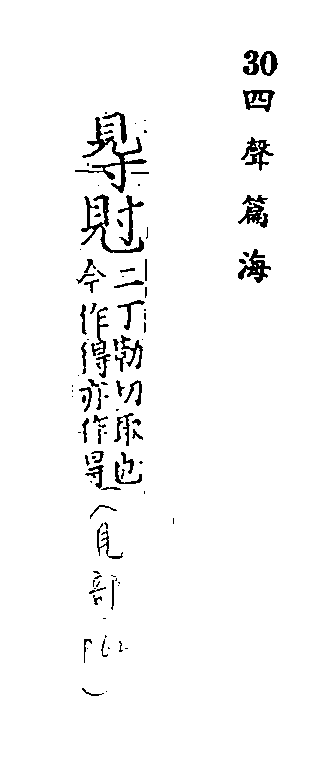 30四聲篇海
䙷
二丁勒切取也
今作得亦作㝵
(見部 P62)